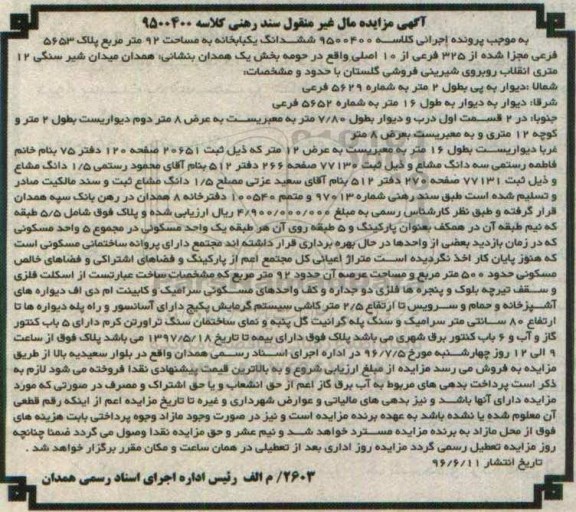 آگهی مزایده مال غیر منقول سند رهنی کلاسه ۹۵۰۰۴۰۰
به موجب پرونده اجرائی کلاسه ۹۵۰۰۴۰۰ ششدانگ یکبابخانه به مساحت ۹۲ متر مربع پلاک ۵۶۵۳
فرعی مجزا شده از ۳۲۵ فرعی از ۱۰ اصلی واقع در حومه بخش یک همدان بنشانی: همدان میدان شیر سنگی ۱۲
متری انقلاب روبروی شیرینی فروشی گلستان با حدود و مشخصات:
شمالا :دیوار به پی بطول ۲ متر به شماره ۵۶۲۹ فرعی
شرقا: دیوار به دیوار به طول ۱۶ متر به شماره ۵۶۵۲ فرعی
جنوبا: در ۲ قسمت اول درب و دیوار بطول ۷/۸۰ متر به معبریست به عرض ۸ متر دوم دیواریست بطول ۲ متر و
کوچه ۱۲ متری و به معبریست بعرض ۸ متر
غربا دیواریست بطول ۱۶ متر به معبریست به عرض ۱۲ متر که ذیل ثبت ۲۰۶۵۱ صفحه ۱۲۰ دفتر ۷۵ بنام خانم
فاطمه رستمی سه دانگ مشاع و ذیل ثبت ۷۷۱۳۰ صفحه ۲۶۶ دفتر ۵۱۲ بنام آقای محمود رستمی ۱/۵ دانگ مشاع
و ذیل ثبت ۷۷۱۳۱ صفحه ۲۷۰ دفتر ۵۱۲ بنام آقای سعید عزتی مصلح ۱/۵ دانگ مشاع ثبت و سند مالکیت صادر
و تسلیم شده است طبق سند رهنی شماره ۹۷۰۱۳ و متمم ۱۰۰۵۴۰ دفترخانه ۸ همدان در رهن بانک سپه همدان
قرار گرفته و طبق نظر کارشناس رسمی به مبلغ ۴/۹۰۰/۰۰۰/۰۰۰ ریال ارزیابی شده و پلاک فوق شامل ۵/۵ طبقه
که نیم طبقه آن در همکف بعنوان پارکینگ و ۵ طبقه روی آن هر طبقه یک واحد مسکونی در مجموع ۵ واحد مسکونی
که در زمان بازدید بعضی از واحدها در حال بهره برداری قرار داشته اند مجتمع دارای پروانه ساختمانی مسکونی است
که هنوز پایان کار اخذ نگردیده است متراژ اعیانی کل مجتمع اعم از پارکینگ و فضاهای اشتراکی و فضاهای خالص
مسکونی حدود ۵۰۰ متر مربع و مساحت عرصه آن حدود ۹۲ متر مربع که مشخصات ساخت عبارتست از اسکلت فلزی
و سقف تیرچه بلوک و پنجره ها فلزی دوجداره و کف واحدهای مسکونی سرامیک و کابینت ام دی اف دیواره های
آشپزخانه و حمام و سرویس تا ارتفاع ۲/۵ متر کاشی سیستم گرمایش پکیج دارای آسانسور و راه پله دیواره ها تا
ارتفاع ۸۰ سانتی متر سرامیک و سنگ پله گرانیت گل پنبه و نمای ساختمان سنگ تراورتن کرم دارای ۵ باب کنتور
گاز و آب و ۶ باب کنتور برق شهری می باشد پلاک فوق دارای بیمه تا تاریخ ۱۳۹۷/۵/۱۸ می باشد پلاک فوق از ساعت
۹ الی ۱۲ روز چهارشنبه مورخ ۹۶/۷/۵ در اداره اجرای اسناد رسمی همدان واقع در بلوار سعیدیه بالا از طریق
مزایده به فروش می رسد مزایده از مبلغ ارزیابی شروع و به بالاترین قیمت پیشنهادی نقدا فروخته می شود لازم به
ذکر است پرداخت بدهی های مربوط به آب برق گاز اعم از حق انشعاب و یا حق اشتراک و مصرف در صورتی که مورد
مزایده دارای آنها باشد و نیز بدهی های مالیاتی و عوارض شهرداری و غیره تا تاریخ مزایده اعم از اینکه رقم قطعی
آن معلوم شده یا نشده باشد به عهده برنده مزایده است و نیز در صورت وجود مازاد وجوه پرداختی بابت هزینه های
فوق از محل مازاد به برنده مزایده مسترد خواهد شد و نیم عشر و حق مزایده نقدا وصول می گردد ضمنا چنانچه
روز مزایده تعطیل رسمی گردد مزایده روز اداری بعد از تعطیلی در همان ساعت و مکان مقرر برگزار خواهد شد .
تاریخ انتشار ۹۶/۶/۱۱
۲۶۰۳/ م الف رئیس اداره اجرای اسناد رسمی همدان